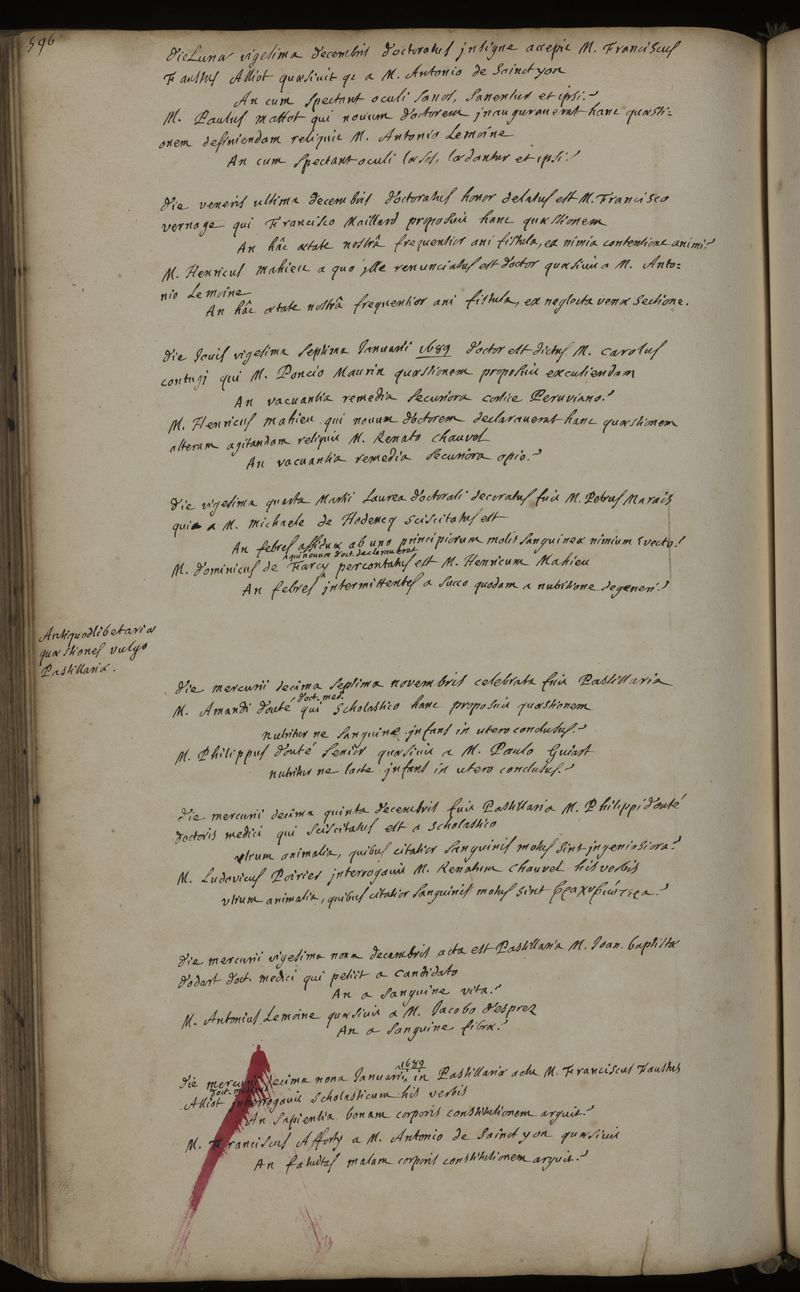 596
die Lunæ vigesima decembris doctoratus insigne accepit M. Franciscus
Faustus Alliot quæsivit qe a M. Antonio de Sainctyon
An cum spectant oculi sanos, sanentur et ipsi?
M. Paulus mattot qui novum doctorem inauguraverat hanc quæsti-
onem definiendam reliquit M. Antonio Lemoine
An cum spectant oculi læsos, lædantur et ipsi?
die veneris ultima decembris doctoratus honor delatus est M. Francisco
vernage qui Francisco Maillard proposuit hanc quæstionem
An hâc ætate nostrâ frequentior ani fistula, ex nimia contentione animi?
M. Henricus mahieu a quo ille renunciatus est doctor quæsivit a M. Anto-
nio Lemoine
An hâc ætate nostrâ frequentior ani fistula, ex neglecta venæ sectione.
die Jovis vigesima septima Januarii 1689 doctor est dictus M. Carolus
contugi qui M. Poncio Maurin quæstionem proposuit excutiendam
An vacuantia remedia securiora cortice Peruviano?
M. Henricus mahieu qui novum doctorem declaraverat hanc quæstionem
alteram agitandam reliquit M. Renato chauvel
An vacuantia remedia securiora opio?
die vigesima quarta Martii Laurea doctorali decoratus fuit M. Petrus Marais
qui a M. michaele de Hodencq sciscitatus est
An febres assiduæ ab uno principiorum molis sanguineæ nimium evecto?
qui novum doct. declamabat
M. dominicus de Farcy percontatus est M. Henricum Mahieu
An febres intermittentes a succo quodam a nutritione degeneri?
Antiquodlibetariæ
quæstiones vulgo
Pastillariæ.
die mercurii decima septima novembris celebrata fuit Pastillaria
doct. med.
M. Amandi douté qui scholastico hanc proposuit quæstionem
nutritur ne sanguine infans in utero conclusus?
M. Philippus douté senior quæsivit a M. Paulo Guiart
nutritur ne lacte infans in utero conclusus?
die mercurii decima quinta decembris fuit Pastillaria M. Philippi douté
doctoris medici qui sciscitatus est a scholastico
utrum animalia, quibus citatior sanguinis motus sint ingeniosiora?
M. Ludovicus Poirier interrogavit M. Renatum chauvel his verbis
utrum animalia, quibus citatior sanguinis motus sint βραχυβιώτερα?
die mercurii vigesima nona decembris acta est Pastillaria M. Joan. baptistæ
dodart doct. medici qui petiit a candidato
An a sanguine vita?
M. Antonius Lemoine quæsivit a M. Jacobo desprez
An a sanguine fibræ?
1689
die mercurii decima nona Januarii in Pastillariæ actu M. Franciscus Faustus
doct. medicus
Alliot interrogavit scholasticum his verbis
An sapientia bonam corporis constitutionem arguit?
M. Franciscus Afforty a M. Antonio de Sainctyon quæsivit
An fatuitas malam corporis constitutionem arguit?